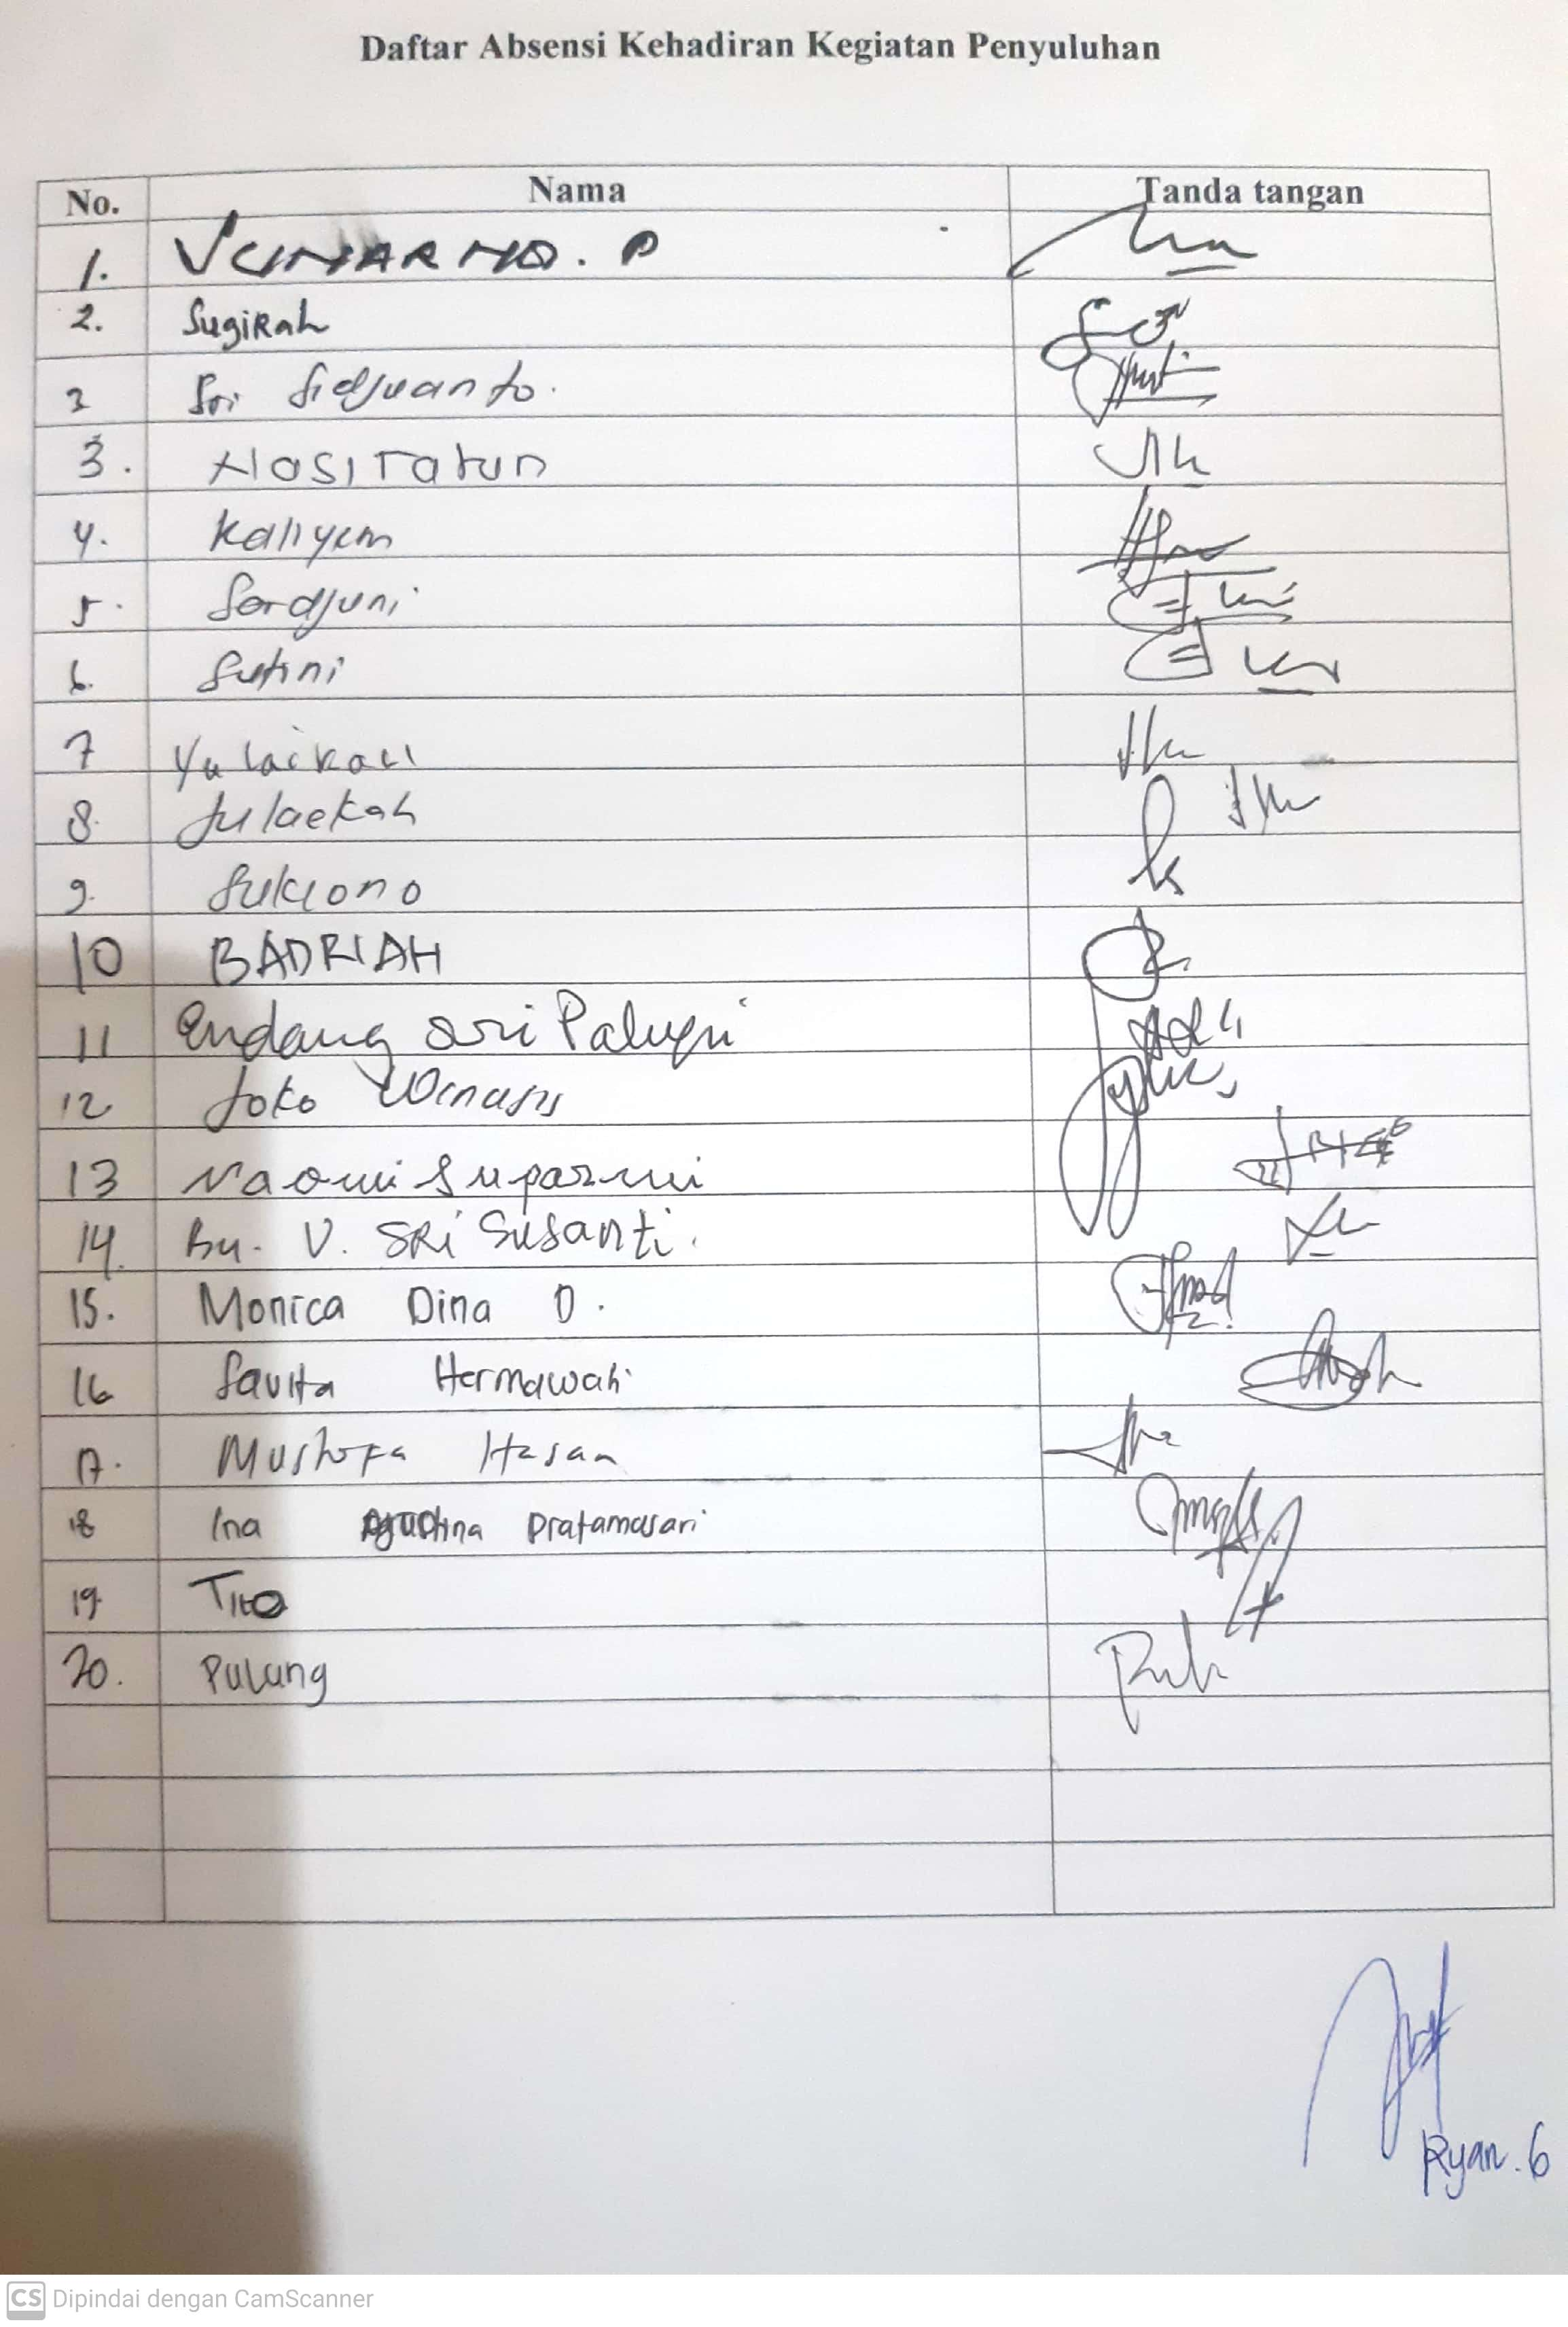 Daftar Absensi Kehadiran Kegiatan Penyuluhan
No. Nama Tanda tangan
1. P
2. Sugirah
3 Sri Sidjuanto.
3. Nasiratun
4. Kaliyem
5. Sardjuni
6. Sutini
7 Yulaikah
8. Julaekah
9. Sukiono
10 BADRIAH
11 Endang Sri Palupi
12 Joko Winarsis
13 Naomi Suparmi
14. Bu. V. SRi Susanti.
15. Monica Dina D.
16 Savita Hermawati
17. Mustofa Hasan
18 Ina Agustina Pratamasari
19 Tito
20. Pulung
Ryan. G
CS Dipindai dengan CamScanner